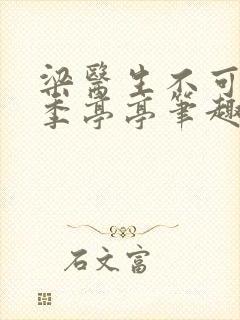 梁醫生不可
季亭亭筆趣
石文富